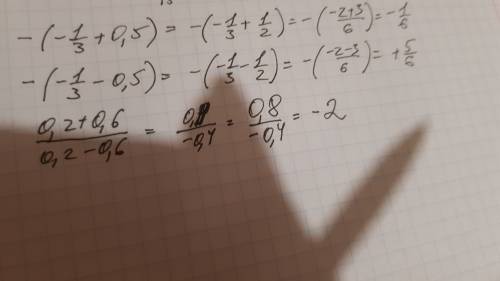 -(-1/3+0,5)= -(-1/3+1/2)=-(-2+3/6)=-1/6
-(-1/3-0,5)= -(-1/3-1/2)=-(-2-3/6)=+5/6
0,2+0,6/0,2-0,6 = 0,8/-0,4 = 0,8/-0,4 = -2